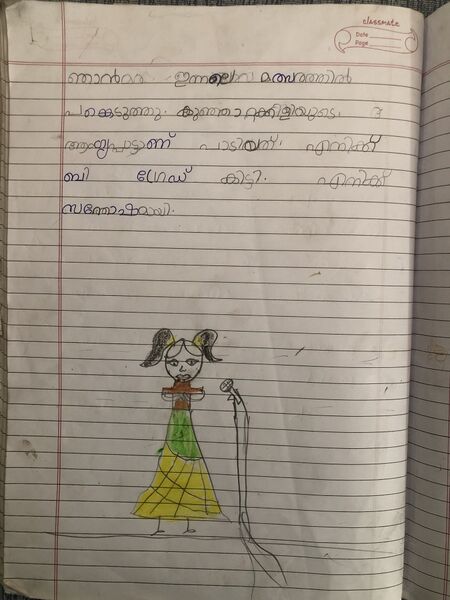 classmate
Date
Page
ഞാൻ ഇന്നലെ മത്സരത്തിൽ
പങ്കെടുത്തു. കുഞ്ഞാറ്റക്കിളിയുടെ
ആംഗ്യപ്പാട്ടാണ് പാടിയത്. എനിക്ക്
ബി ഗ്രേഡ് കിട്ടി. എനിക്ക്
സന്തോഷമായി.